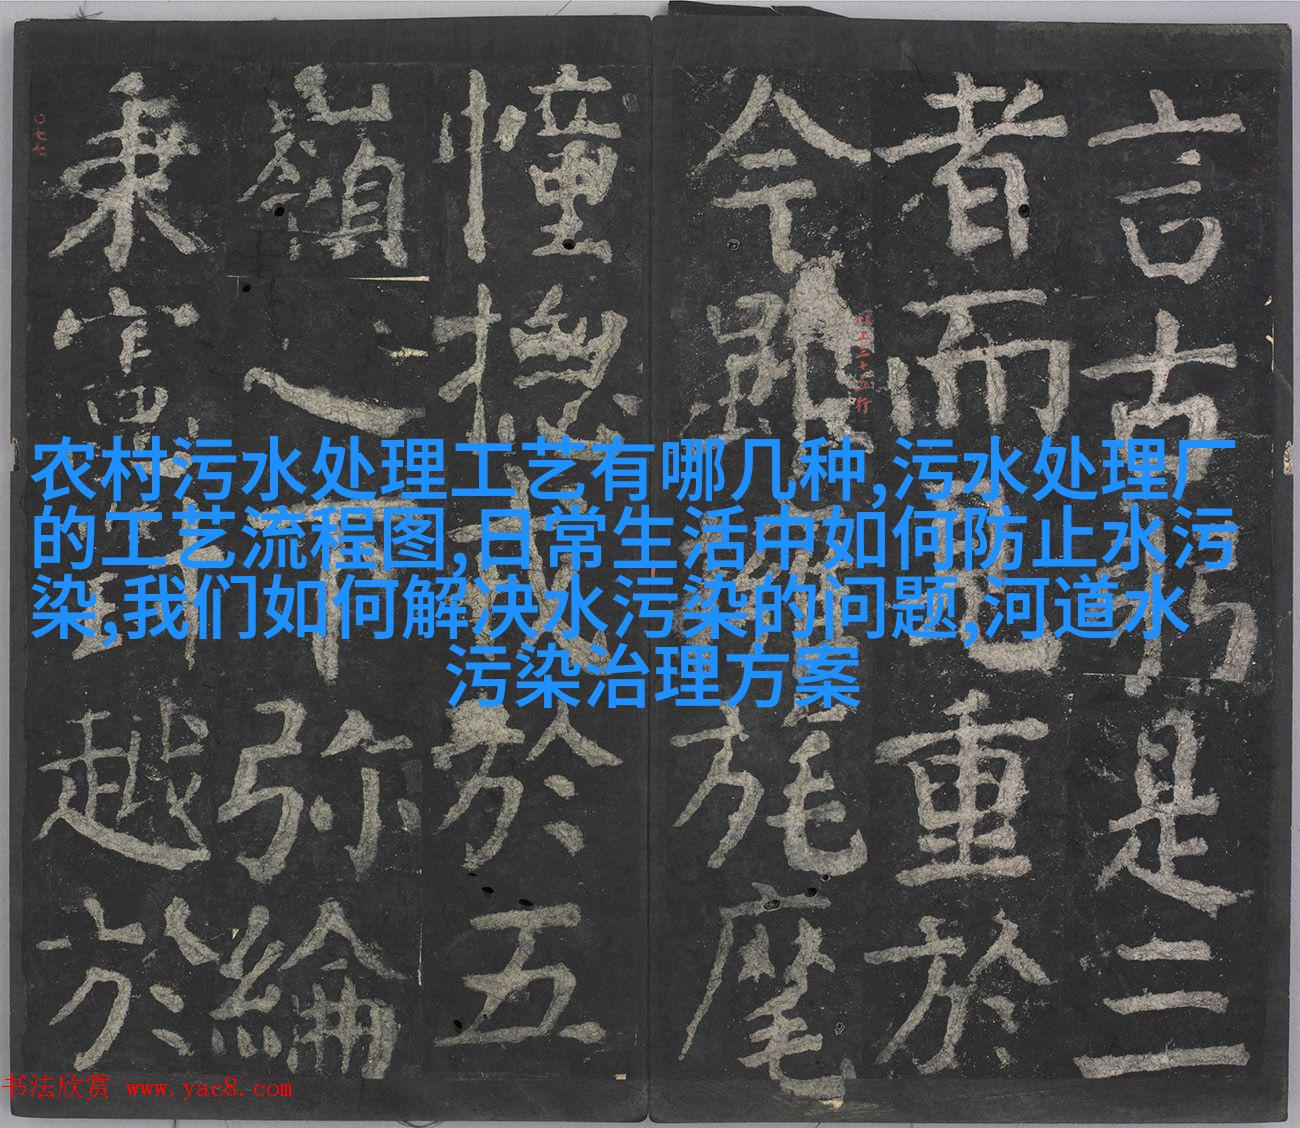 言古是三
者而重於
今旄麾
憧摠戎於五
嶺之下弥綸
秉憲越於
农村污水处理工艺有哪几种,污水处理厂
的工艺流程图,日常生活中如何防止水污
染,我们如何解决水污染的问题,河道水
污染治理方案
书法欣赏 www.yac8.com